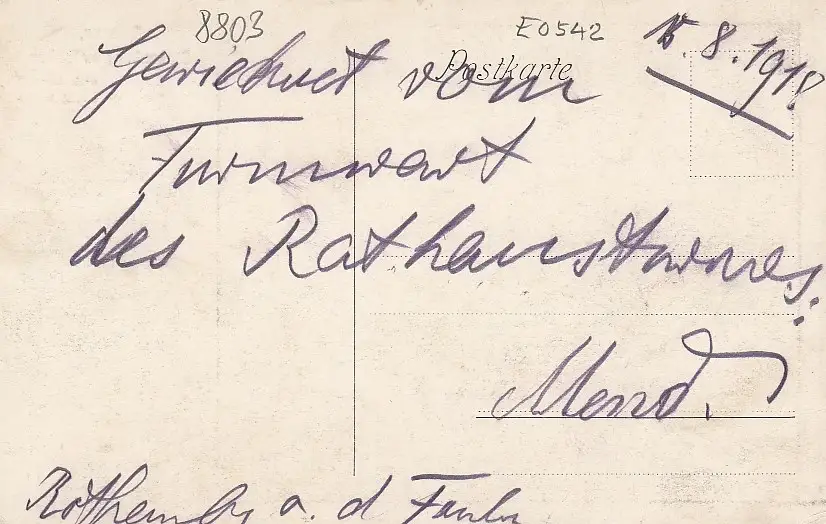 8803 E0542
Postkarte
15.8.1918
Gezeichnet vom
Turmwart
des Rathausturmes:
Rothenburg a. d Tauber